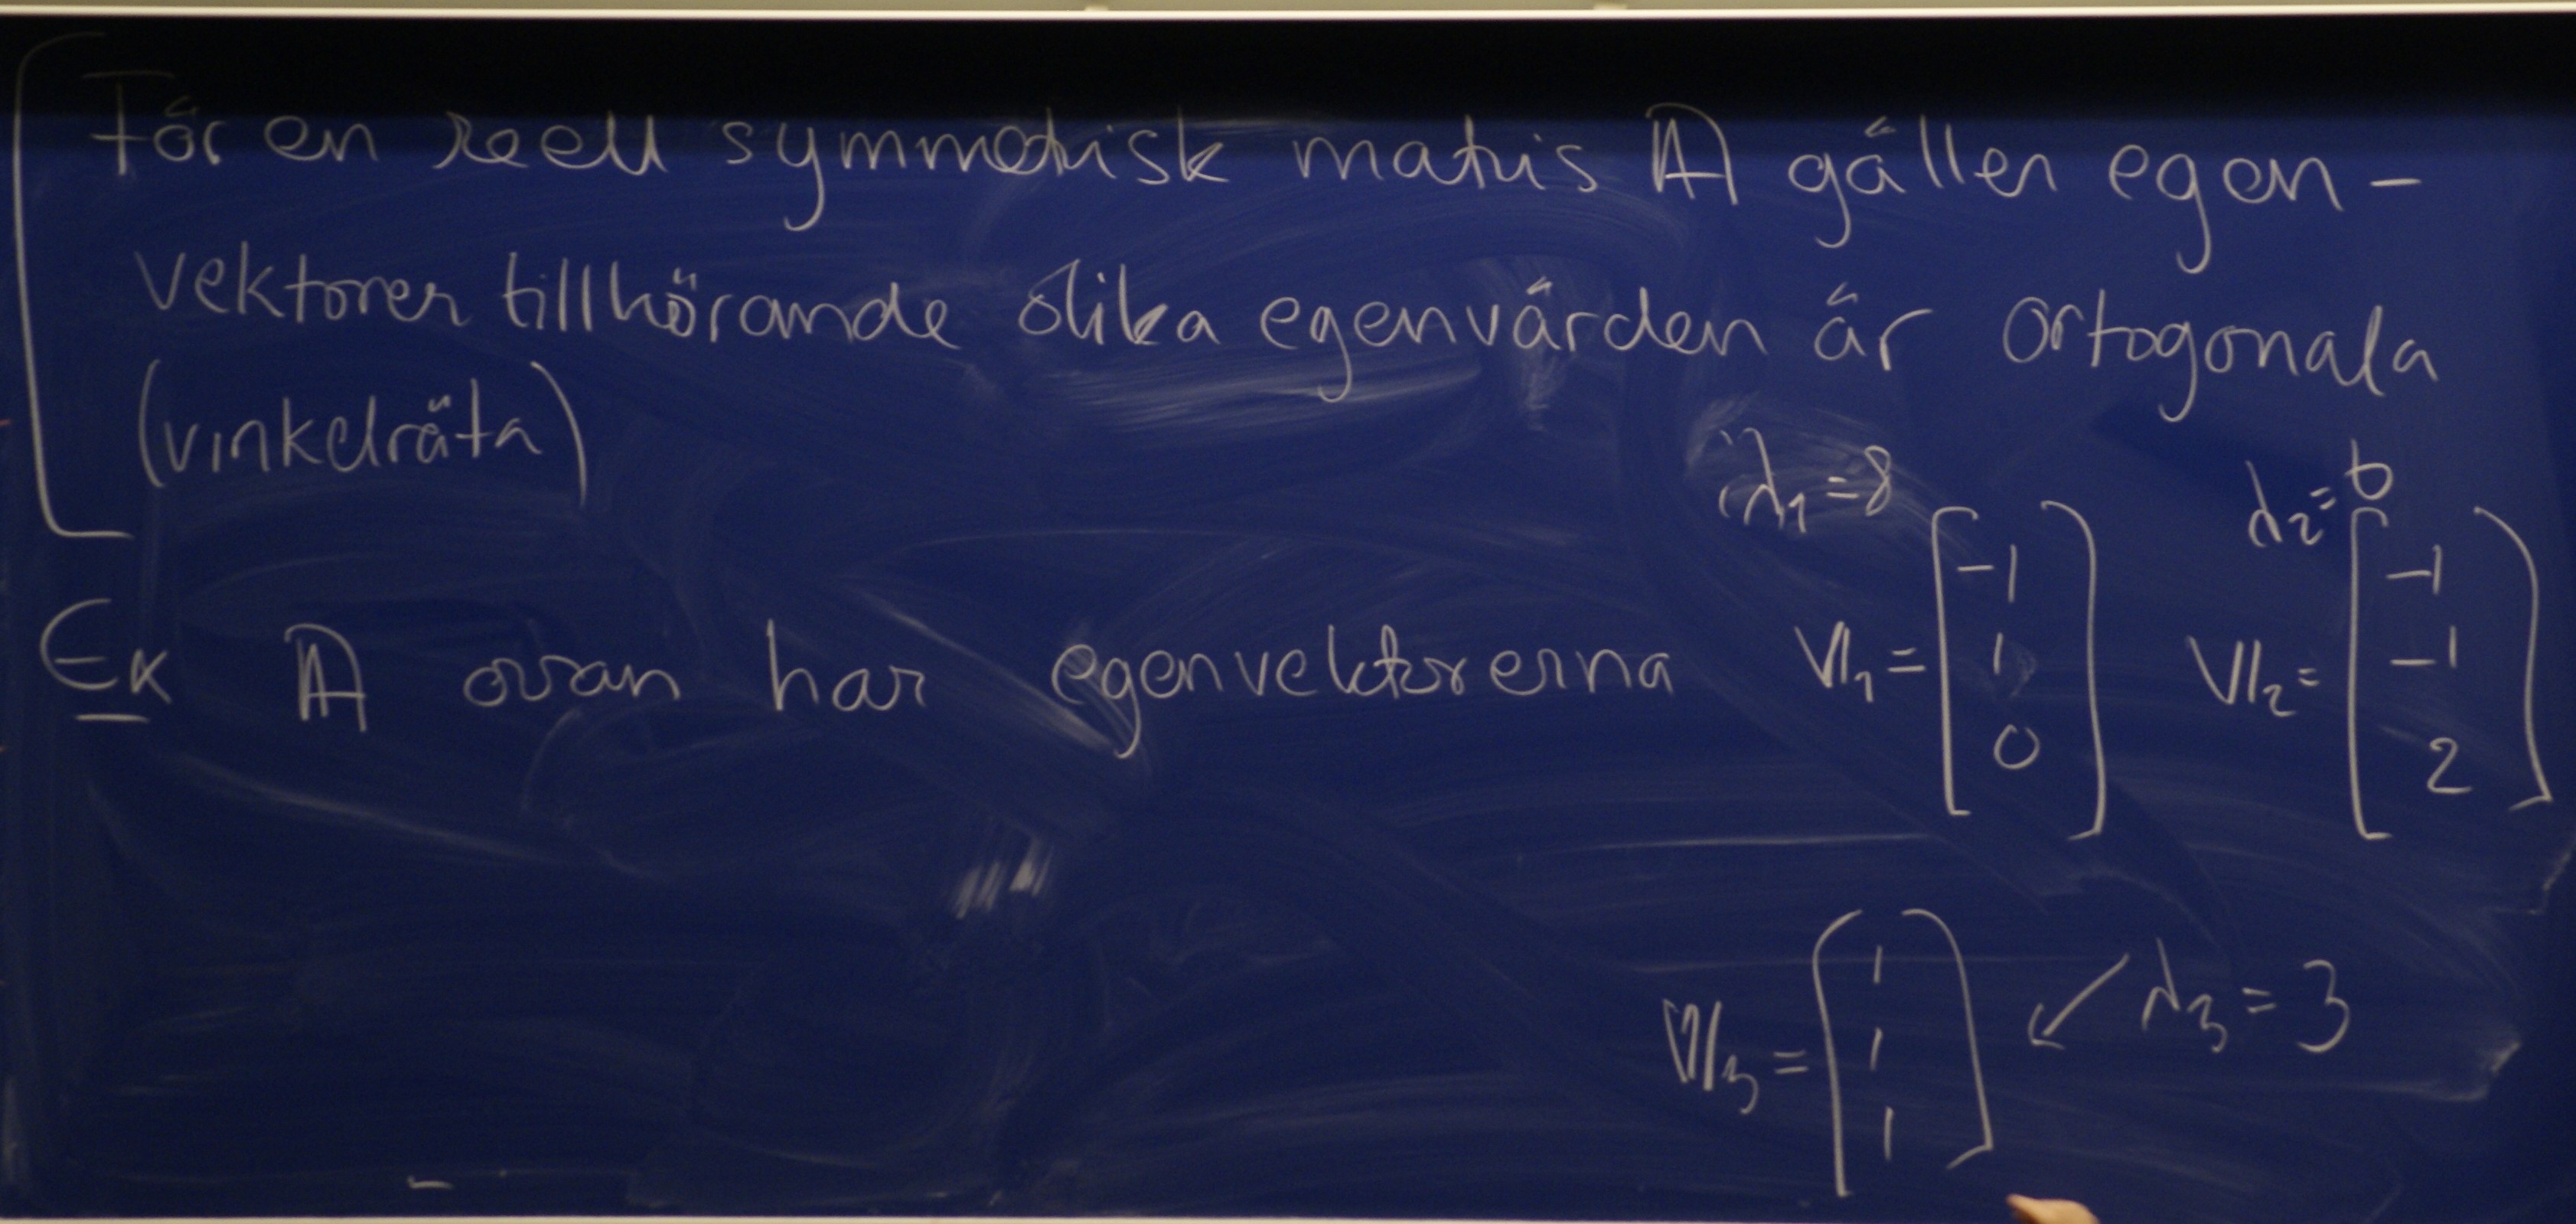 För en reell symmetrisk matris A gäller egen-
vektorer tillhörande olika egenvärden är ortogonala
(vinkelräta)
λ₁=8 λ₂=6
Ex A ovan har egenvektorerna V₁= [-1 1 0] V₂= [-1 -1 2]
V₃= [1 1 1] ↙ λ₃=3